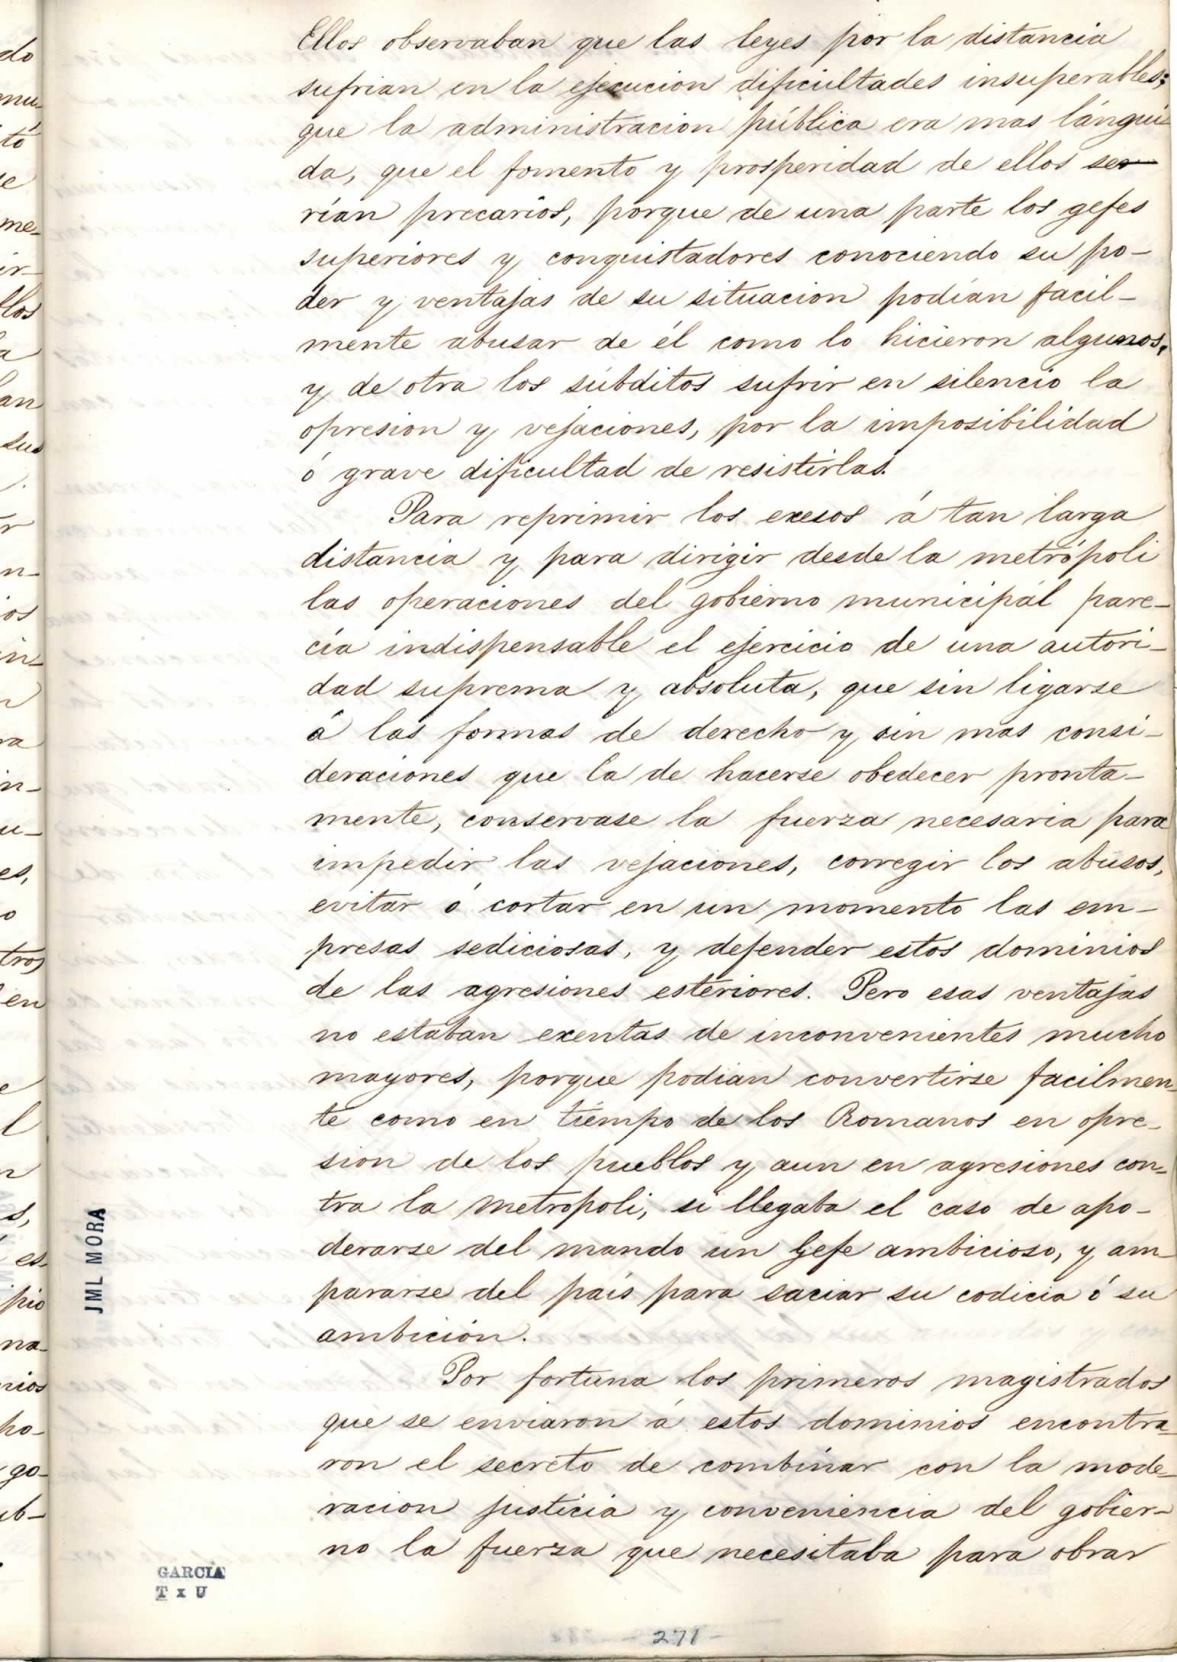 Ellos observaban que las leyes por la distancia
sufrian en la ejecucion dificultades insuperables;
que la administracion pública era mas lángui
da, que el fomento y prosperidad de ellos ser
rían precarios, porque de una parte los gefes
superiores y conquistadores conociendo su po-
der y ventajas de su situacion podían facil-
mente abusar de él como lo hicieron algunos,
y de otra los súbditos sufrir en silencio la
opresion y vejaciones, por la imposibilidad
ó grave dificultad de resistirlas.
Para reprimir los exesos á tan larga
distancia y para dirigir desde la metrópoli
las operaciones del gobierno municipál pare-
cía indispensable el ejercicio de una autori-
dad suprema y absoluta, que sin ligarse
á las formas de derecho y sin mas consi-
deraciones que la de hacerse obedecer pronta-
mente, conservase la fuerza necesaria para
impedir las vejaciones, corregir los abusos,
evitar ó cortar en un momento las em-
presas sediciosas, y defender estos dominios
de las agresiones esteriores. Pero esas ventajas
no estaban exentas de inconvenientes mucho
mayores, porque podian convertirse facilmen
te como en tiempo de los Romanos en opre-
sion de los pueblos y aun en agresiones con-
tra la metrópoli, si llegaba el caso de apo-
derarse del mando un Gefe ambicioso, y am
pararse del país para saciar su codicia ó su
ambición.
Por fortuna los primeros magistrados
que se enviaron á estos dominios encontra
ron el secreto de combinar con la mode-
racion justicia y conveniencia del gobier-
no la fuerza que necesitaba para obrar
JML MORA
GARCIA
T x U
- 271 -
do
mu-
tó
se
me-
ir-
llos
a
lan
sus
r
n-
ios
in-
n
ra
in-
u-
es,
o
tros
en
e
l
n
s,
es-
pio
na-
nios
ho-
go-
ub-